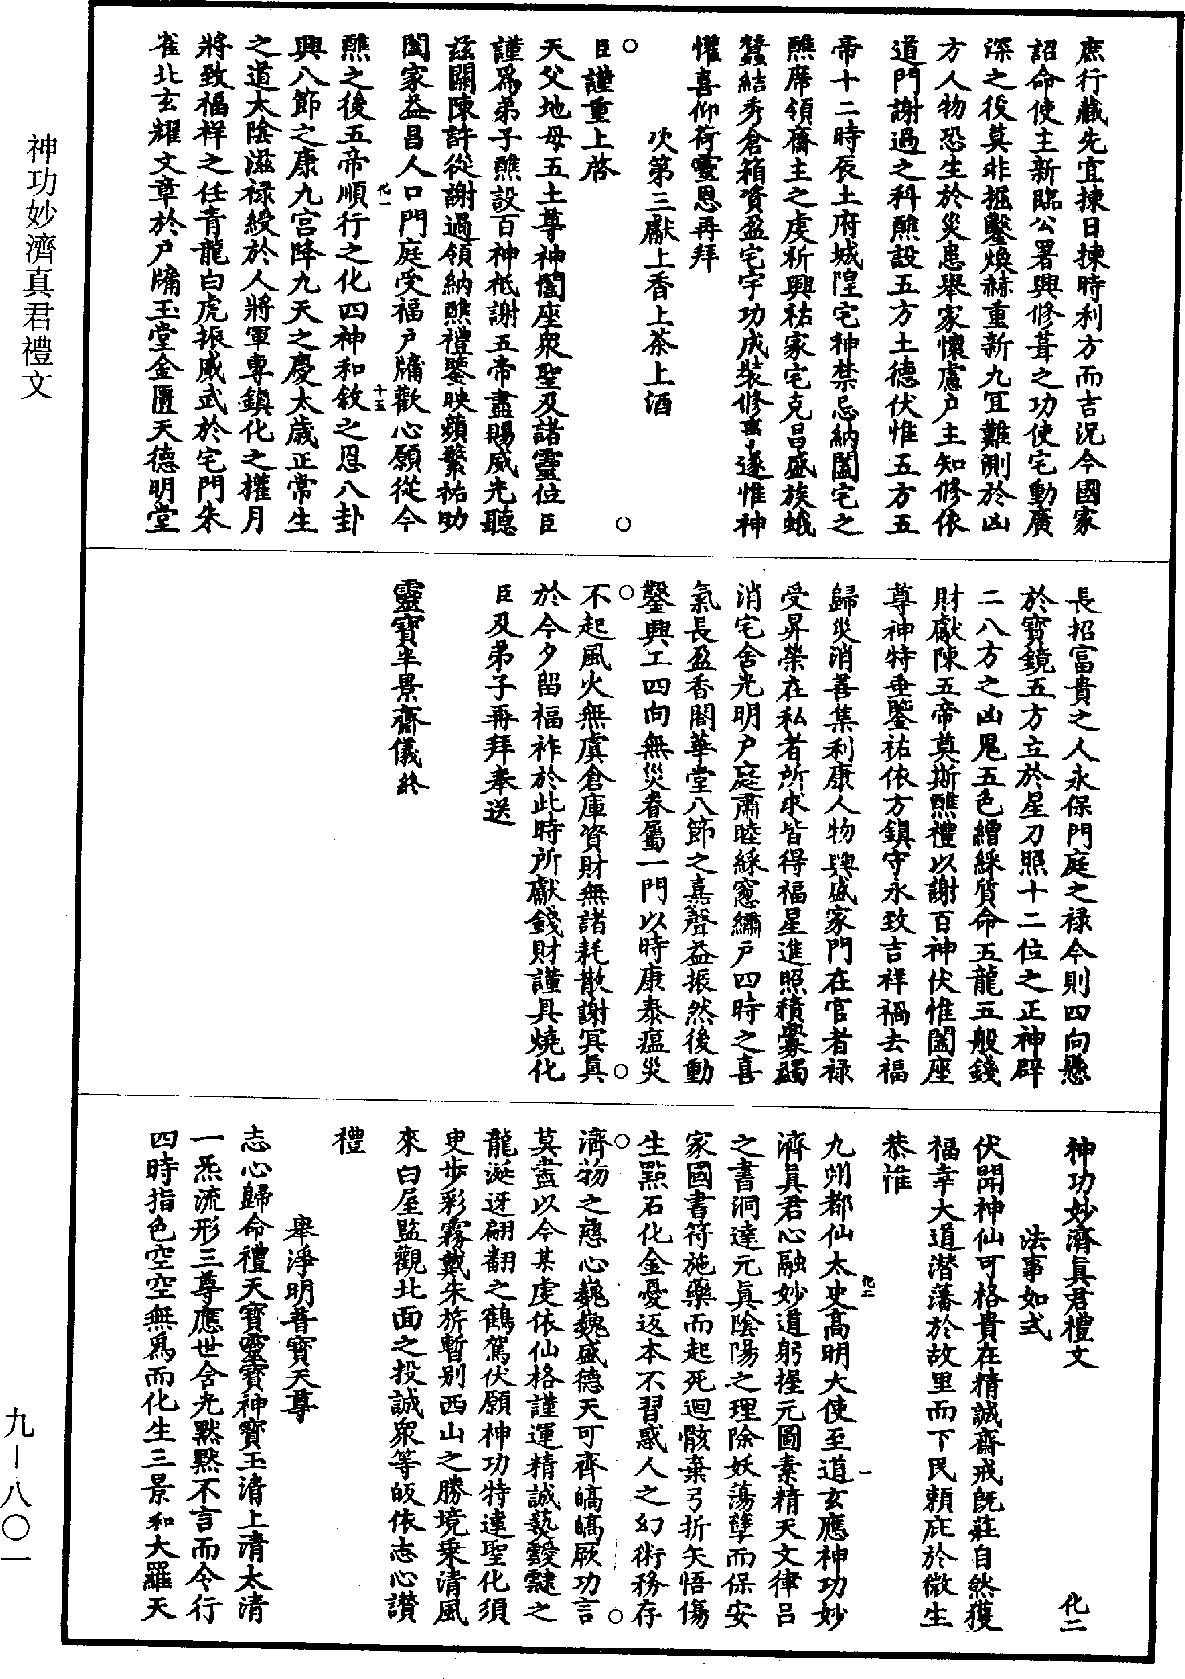 庶行藏先宜揀日揀時利方而吉況今國家
詔命使主新臨公署興修葺之功使宅動廣
深之役莫非掘鑿煥赫重新九宜難測於凶
方人物恐生於災患舉家懷慮戶主知修依
道門謝過之科醮設五方土德伏惟五方五
帝十二時辰土府城隍宅神禁忌納闔宅之
醮席領齋主之虔祈興祜家宅克昌盛族蛾
蠶結秀倉箱資盈宅宇功成裝修事遂惟神
懽喜仰荷靈恩再拜
次第三獻上香上茶上酒
臣謹重上啓
天父地母五土尊神闔座衆聖及諸靈位臣
謹爲弟子醮設百神祇謝五帝盡賜威光聽
茲關陳許從謝過領納醮禮鑒映蘋蘩祐助
闔家益昌人口門庭受福戶牖歡心願從今
醮之後五帝順行之化四神和敘之恩八卦
興八節之康九宮降九天之慶太歲正常生
之道太陰滋祿綬於人將軍專鎮化之權月
將致福祥之任青龍白虎振威武於宅門朱
雀北玄耀文章於戶牖玉堂金匱天德明堂
長招富貴之人永保門庭之祿今則四向懸
於寶鏡五方立於星刀照十二位之正神辟
二八方之凶鬼五色繒綵質命五龍五般錢
財獻陳五帝奠斯醮禮以謝百神伏惟闔座
尊神特垂鑒祐依方鎮守永致吉祥禍去福
歸災消善集利康人物興盛家門在官者祿
受昇榮在私者所求皆得福星進照積釁蠲
消宅舍光明戶庭肅睦綵窓繡戶四時之喜
氣長盈香閣華堂八節之嘉聲益振然後動
鑿興工四向無災眷屬一門以時康泰瘟災
不起風火無虞倉庫資財無諸耗散謝冥真
於今夕留福祚於此時所獻錢財謹具燒化
臣及弟子再拜奉送
靈寶半景齋儀終
神功妙濟真君禮文　化二
法事如式
伏聞神仙可格貴在精誠齋戒既莊自然獲
福幸大道潛藩於故里而下民賴庇於微生
恭惟
九州都仙太史高明大使至道玄應神功妙
濟真君心融妙道躬握元圖素精天文律呂
之書洞達元真陰陽之理除妖蕩孽而保安
家國書符施藥而起死迴骸棄弓折矢悟傷
生點石化金憂返本不習惑人之幻術務存
濟物之慈心巍巍盛德天可齊皜皜厥功言
莫盡以今某虔依仙格謹運精誠爇靉靆之
龍涎迓翩翻之鶴駕伏願神功特達聖化須
史步彩霧戴朱旂暫別西山之勝境乘清風
來白屋監觀北面之投誠衆等皈依志心讚
禮
舉淨明普寶天尊
志心歸命禮天寶靈寶神寶玉清上清太清
一炁流形三尊應世含光默默不言而令行
四時指色空空無爲而化生三景和大羅天
神功妙濟真君禮文
九—八〇一